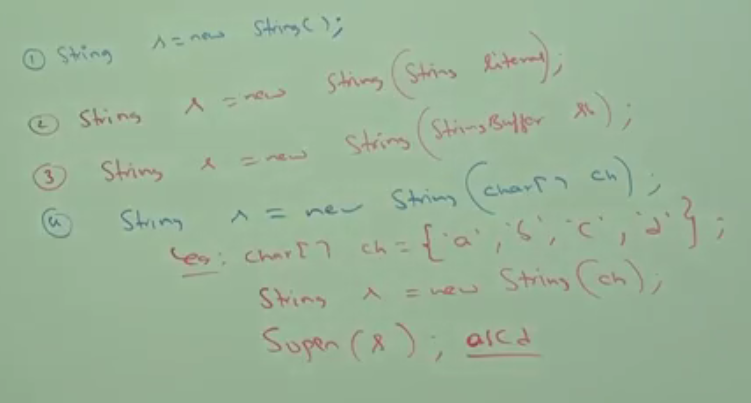 ① String s = new String();
② String s = new String(String literal);
③ String s = new String(StringBuffer sb);
④ String s = new String(char[] ch);
eg: char[] ch = {'a', 'b', 'c', 'd'};
String s = new String(ch);
Sopln(s); abcd